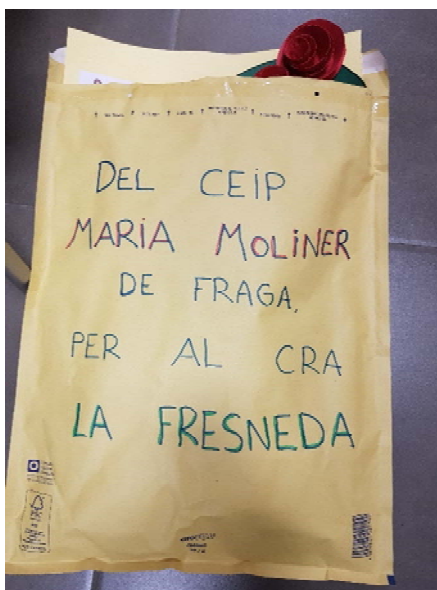 DEL CEIP
MARIA MOLINER
DE FRAGA,
PER AL CRA
LA FRESNEDA